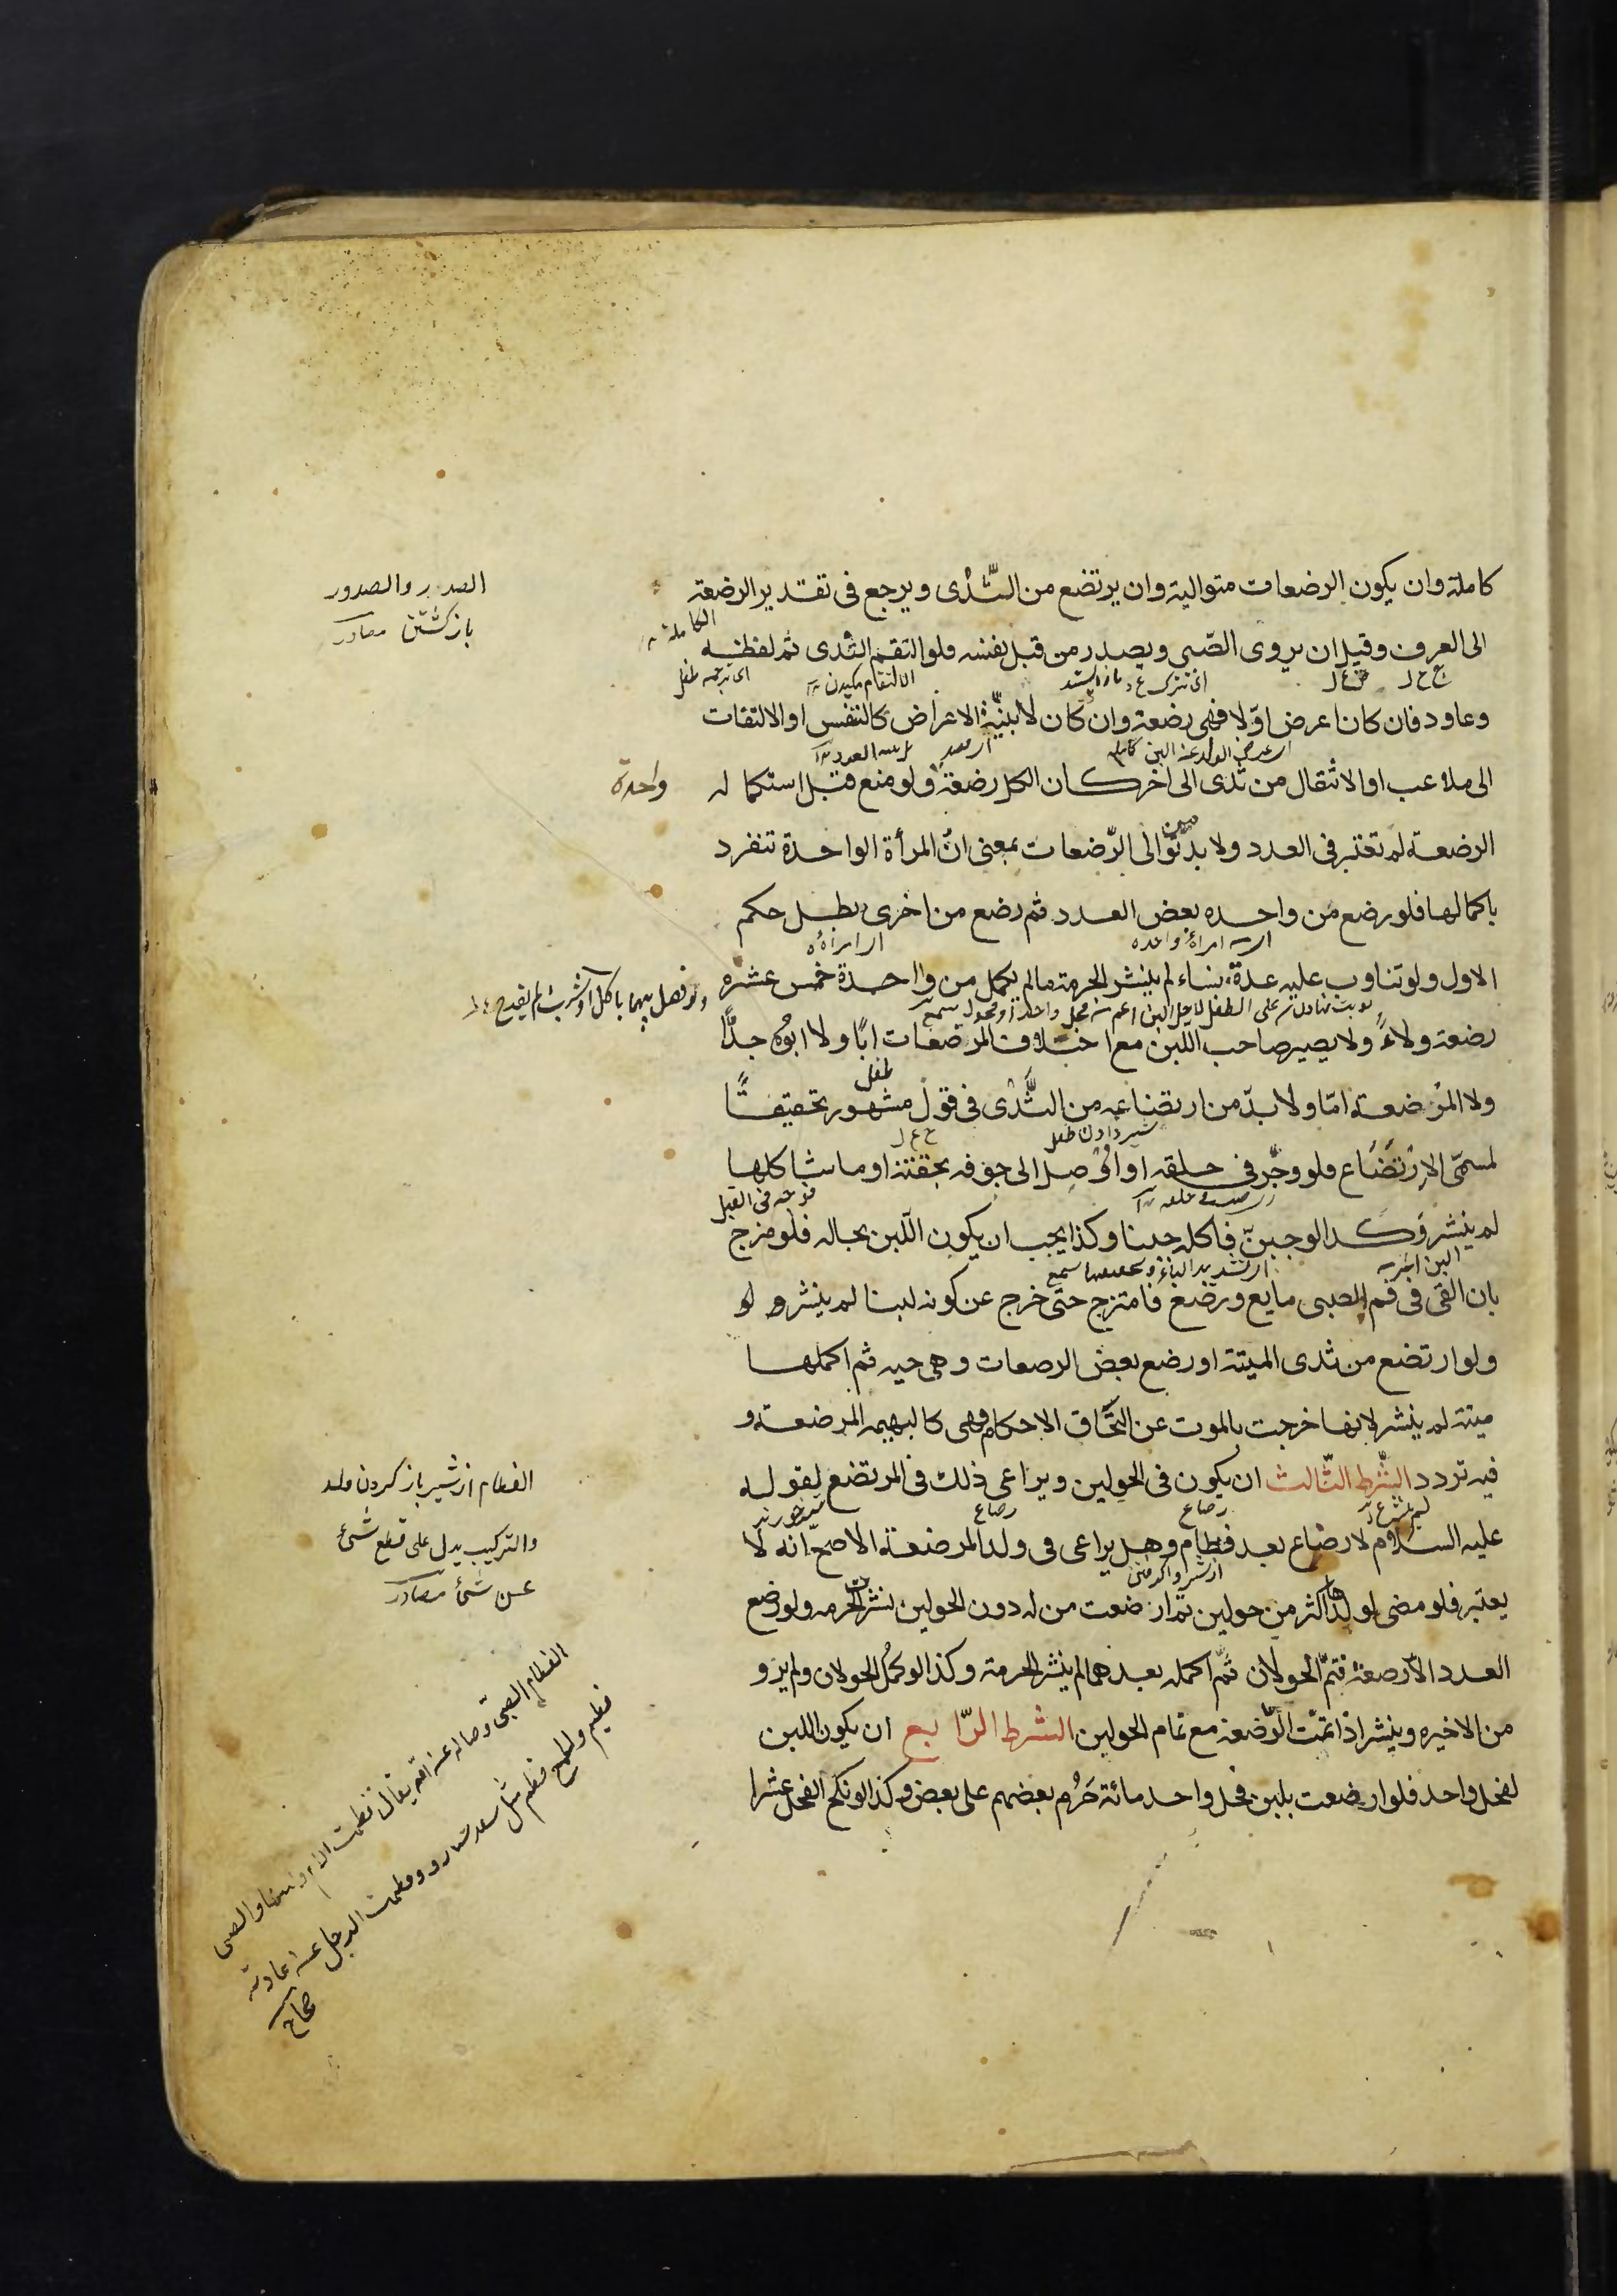 كاملة وان يكون الرضعات متوالية وان يرتضع من الثّدى ويرجع فى تقدير الرضعة
الكاملة
الى العرف وقيل ان يروى الصّبى ويصدر من قبل نفسه فلو التقم الثّدى ثم لفظه
وعاود فان كان اعرض اوّلا فهى رضعة وان كان لا بنيّة الاعراض كالنفس او الالتفات
الى ملاعب او الانتقال من ثدى الى اخر كان الكل رضعة ولو منع قبل استكماله
واحدة
الرضعة لم تعتبر فى العدد ولا بد من توالى الرّضعات بمعنى انّ المرأة الواحدة تنفرد
باكمالها فلو رضع من واحده بعض العدد ثم رضع من اخرى بطل حكم
امرأة واحده
الاول ولو تناوب عليه عدة نساء لم ينشر الحرمة مالم يكمل من واحدة خمس عشره
ولو فصل بينهما باكل او شرب لم يقدح
رضعة ولاءً ولا يصير صاحب اللبن مع اختلاف المرضعات ابًا ولا ابوُه جدًّا
ولا المرضعة امّا ولا بدّ من ارتضاعه من الثَّدْى فى قول مشهور تحقيقًا
طفل
لمسمّى الارتضاع فلو وجّر فى حلقه او اوصل الى جوفه بحقنة او ما شاكلها
شير دادن طفل
لم ينشر وكذا لو جبنّ فاكله جبنا وكذا يجب ان يكون اللّبن بحاله فلو مزج
بان القى فى فم الصبى مايع ورضع فامتزج حتى خرج عن كونه لبنا لم ينشر و لو
ولو ارتضع من ثدى الميتة او رضع بعض الرصعات وهى حيه ثم اكملها
ميتة لم ينشر لانها خرجت بالموت عن التحاق الاحكام فهى كالبهيمه المرضعة و
فيه تردد الشّرط الثّالث ان يكون فى الحولين ويراعى ذلك فى المرتضع لقوله
عليه السلام لا رضاع بعد فطام وهل يراعى فى ولد المرضعة الاصحّ انه لا
يعتبر فلو مضى لولدها اكثر من حولين ثم ارضعت من له دون الحولين نشر الحرمه ولو رضع
العدد الّا رضعة فتمّ الحولان ثمّ اكمله بعدهما لم ينشر الحرمة وكذا لو كمُل الحولان ولم يرو
من الاخيره وينشر اذا تمّت الرّضعة مع تمام الحولين الشرط الرّابع ان يكون اللبن
لفحل واحد فلو ارضعت بلبن فحل واحد مائة حَرُم بعضهم على بعض وكذا لو نكح الفحل عشرا
الصدر والصدور
باز كشتن مصادر
الفطام از شير باز كردن ولد
والتركيب يدل على قطع شئ
عن شئ مصادر
الفطام الصبى وصاله عن امّه يقال فطمت الام ولدها والصبى
فطيم والجمع فطم مثل وفطمت الرجل عن عادته
صحاح